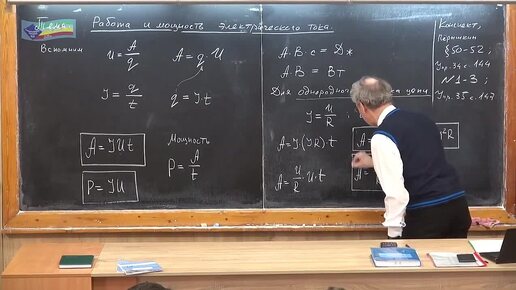 Тема: Работа и мощность электрического тока.
Вспомним
U = A/q
A = q U
I = q/t
q = I t
A = I U t
Мощность
P = A/t
P = I U
А·В·с = Дж
А·В = Вт
Для однородного цепи
I = U/R ;
A = I·(IR)·t
A = U/R · U·t
A =
²R
A =
R
Конспект,
Пёрышкин
§50-52;
Упр. 34 с. 144
N 1-3;
Упр. 35 с. 147